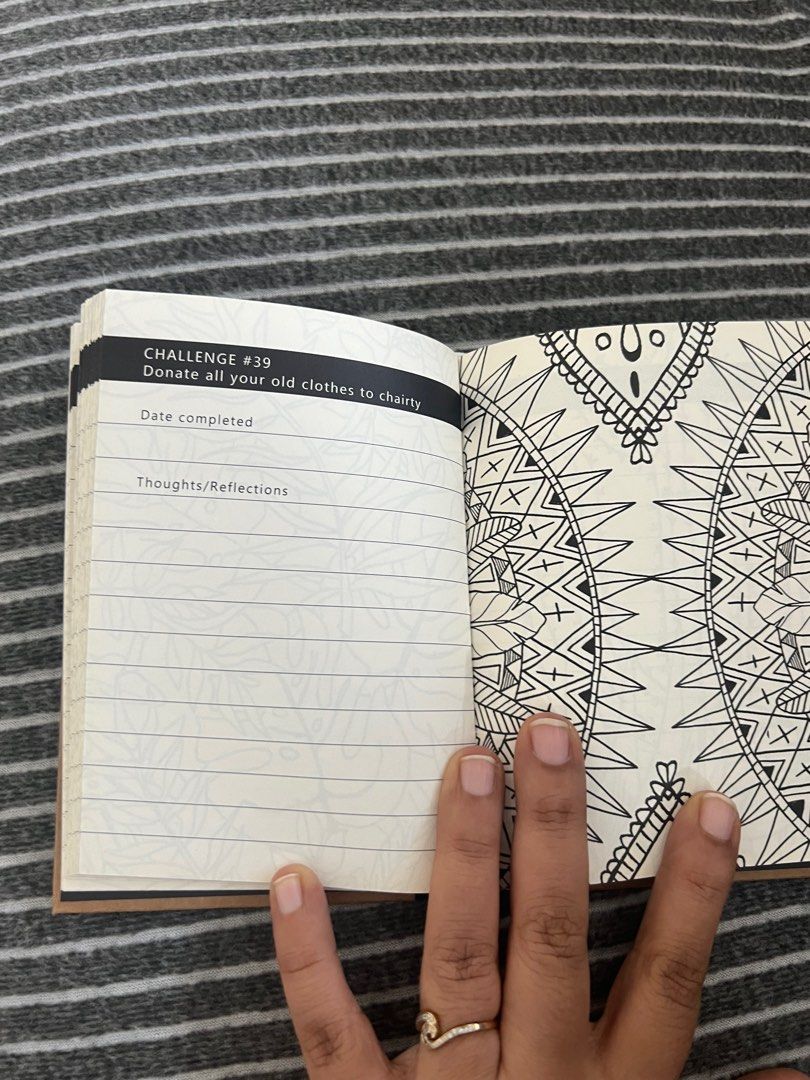 CHALLENGE #39
Donate all your old clothes to chairty
Date completed
Thoughts/Reflections